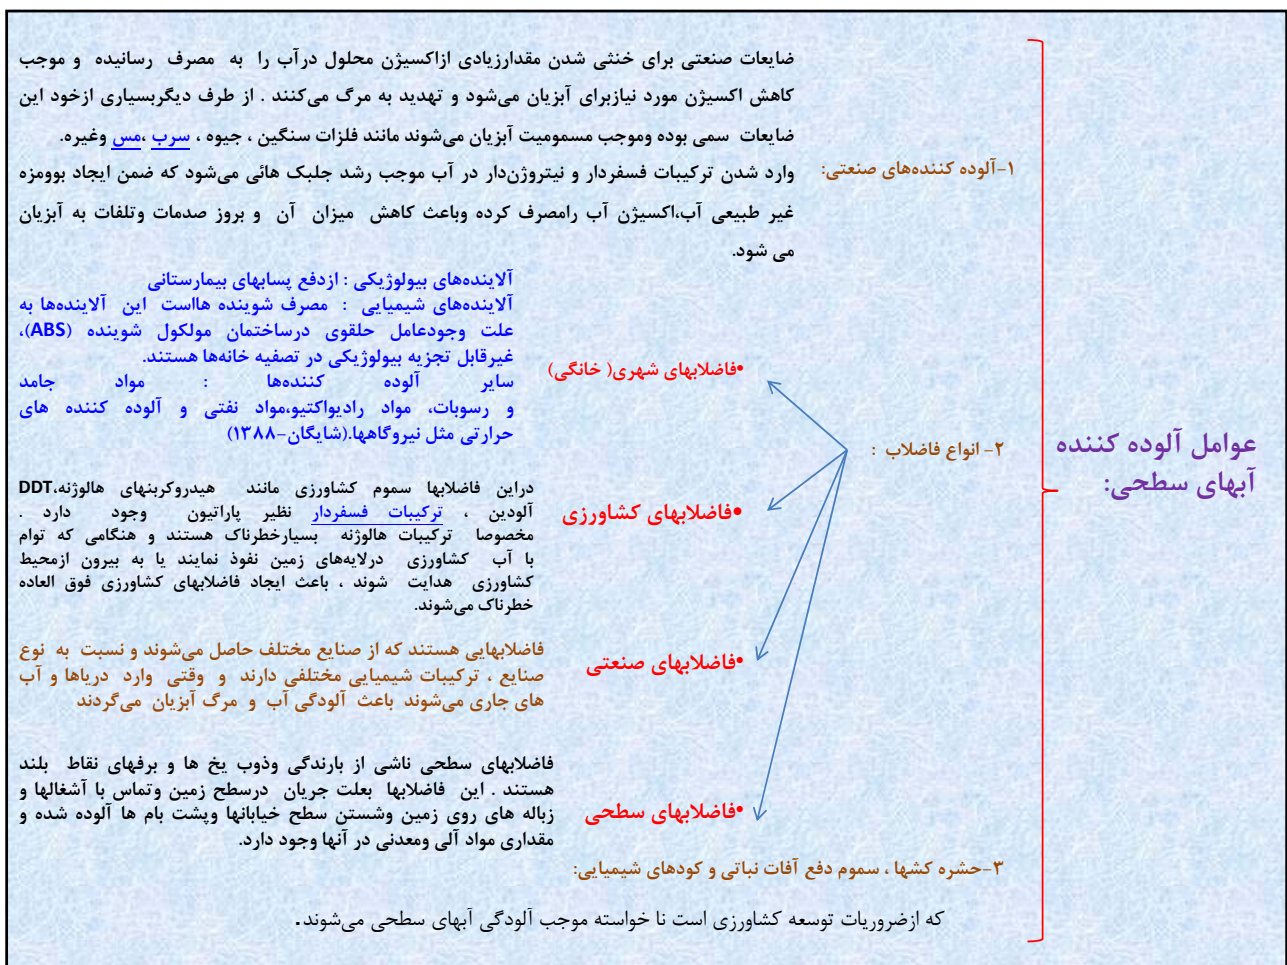 عوامل آلوده کننده
آبهای سطحی:
۱-آلوده کننده‌های صنعتی:
ضایعات صنعتی برای خنثی شدن مقدارزیادی ازاکسیژن محلول درآب را به مصرف رسانیده و موجب
کاهش اکسیژن مورد نیازبرای آبزیان می‌شود و تهدید به مرگ می‌کنند . از طرف دیگربسیاری ازخود این
ضایعات سمی بوده وموجب مسمومیت آبزیان می‌شوند مانند فلزات سنگین ، جیوه ، سرب ،مس وغیره.
وارد شدن ترکیبات فسفردار و نیتروژن‌دار در آب موجب رشد جلبک هائی می‌شود که ضمن ایجاد بوومزه
غیر طبیعی آب،اکسیژن آب رامصرف کرده وباعث کاهش میزان آن و بروز صدمات وتلفات به آبزیان
می شود.
۲- انواع فاضلاب :
•فاضلابهای شهری( خانگی)
آلاینده‌های بیولوژیکی : ازدفع پسابهای بیمارستانی
آلاینده‌های شیمیایی : مصرف شوینده هااست این آلاینده‌ها به
علت وجودعامل حلقوی درساختمان مولکول شوینده (ABS)،
غیرقابل تجزیه بیولوژیکی در تصفیه خانه‌ها هستند.
سایر آلوده کننده‌ها : مواد جامد
و رسوبات، مواد رادیواکتیو،مواد نفتی و آلوده کننده های
حرارتی مثل نیروگاهها.(شایگان-۱۳۸۸)
•فاضلابهای کشاورزی
دراین فاضلابها سموم کشاورزی مانند هیدروکربنهای هالوژنه،DDT
آلودین ، ترکیبات فسفردار نظیر پاراتیون وجود دارد .
مخصوصا ترکیبات هالوژنه بسیارخطرناک هستند و هنگامی که توام
با آب کشاورزی درلایه‌های زمین نفوذ نمایند یا به بیرون ازمحیط
کشاورزی هدایت شوند ، باعث ایجاد فاضلابهای کشاورزی فوق العاده
خطرناک می‌شوند.
•فاضلابهای صنعتی
فاضلابهایی هستند که از صنایع مختلف حاصل می‌شوند و نسبت به نوع
صنایع ، ترکیبات شیمیایی مختلفی دارند و وقتی وارد دریاها و آب
های جاری می‌شوند باعث آلودگی آب و مرگ آبزیان می‌گردند
•فاضلابهای سطحی
فاضلابهای سطحی ناشی از بارندگی وذوب یخ ها و برفهای نقاط بلند
هستند . این فاضلابها بعلت جریان درسطح زمین وتماس با آشغالها و
زباله های روی زمین وشستن سطح خیابانها وپشت بام ها آلوده شده و
مقداری مواد آلی ومعدنی در آنها وجود دارد.
۳-حشره کشها ، سموم دفع آفات نباتی و کودهای شیمیایی:
که ازضروریات توسعه کشاورزی است نا خواسته موجب آلودگی آبهای سطحی می‌شوند.